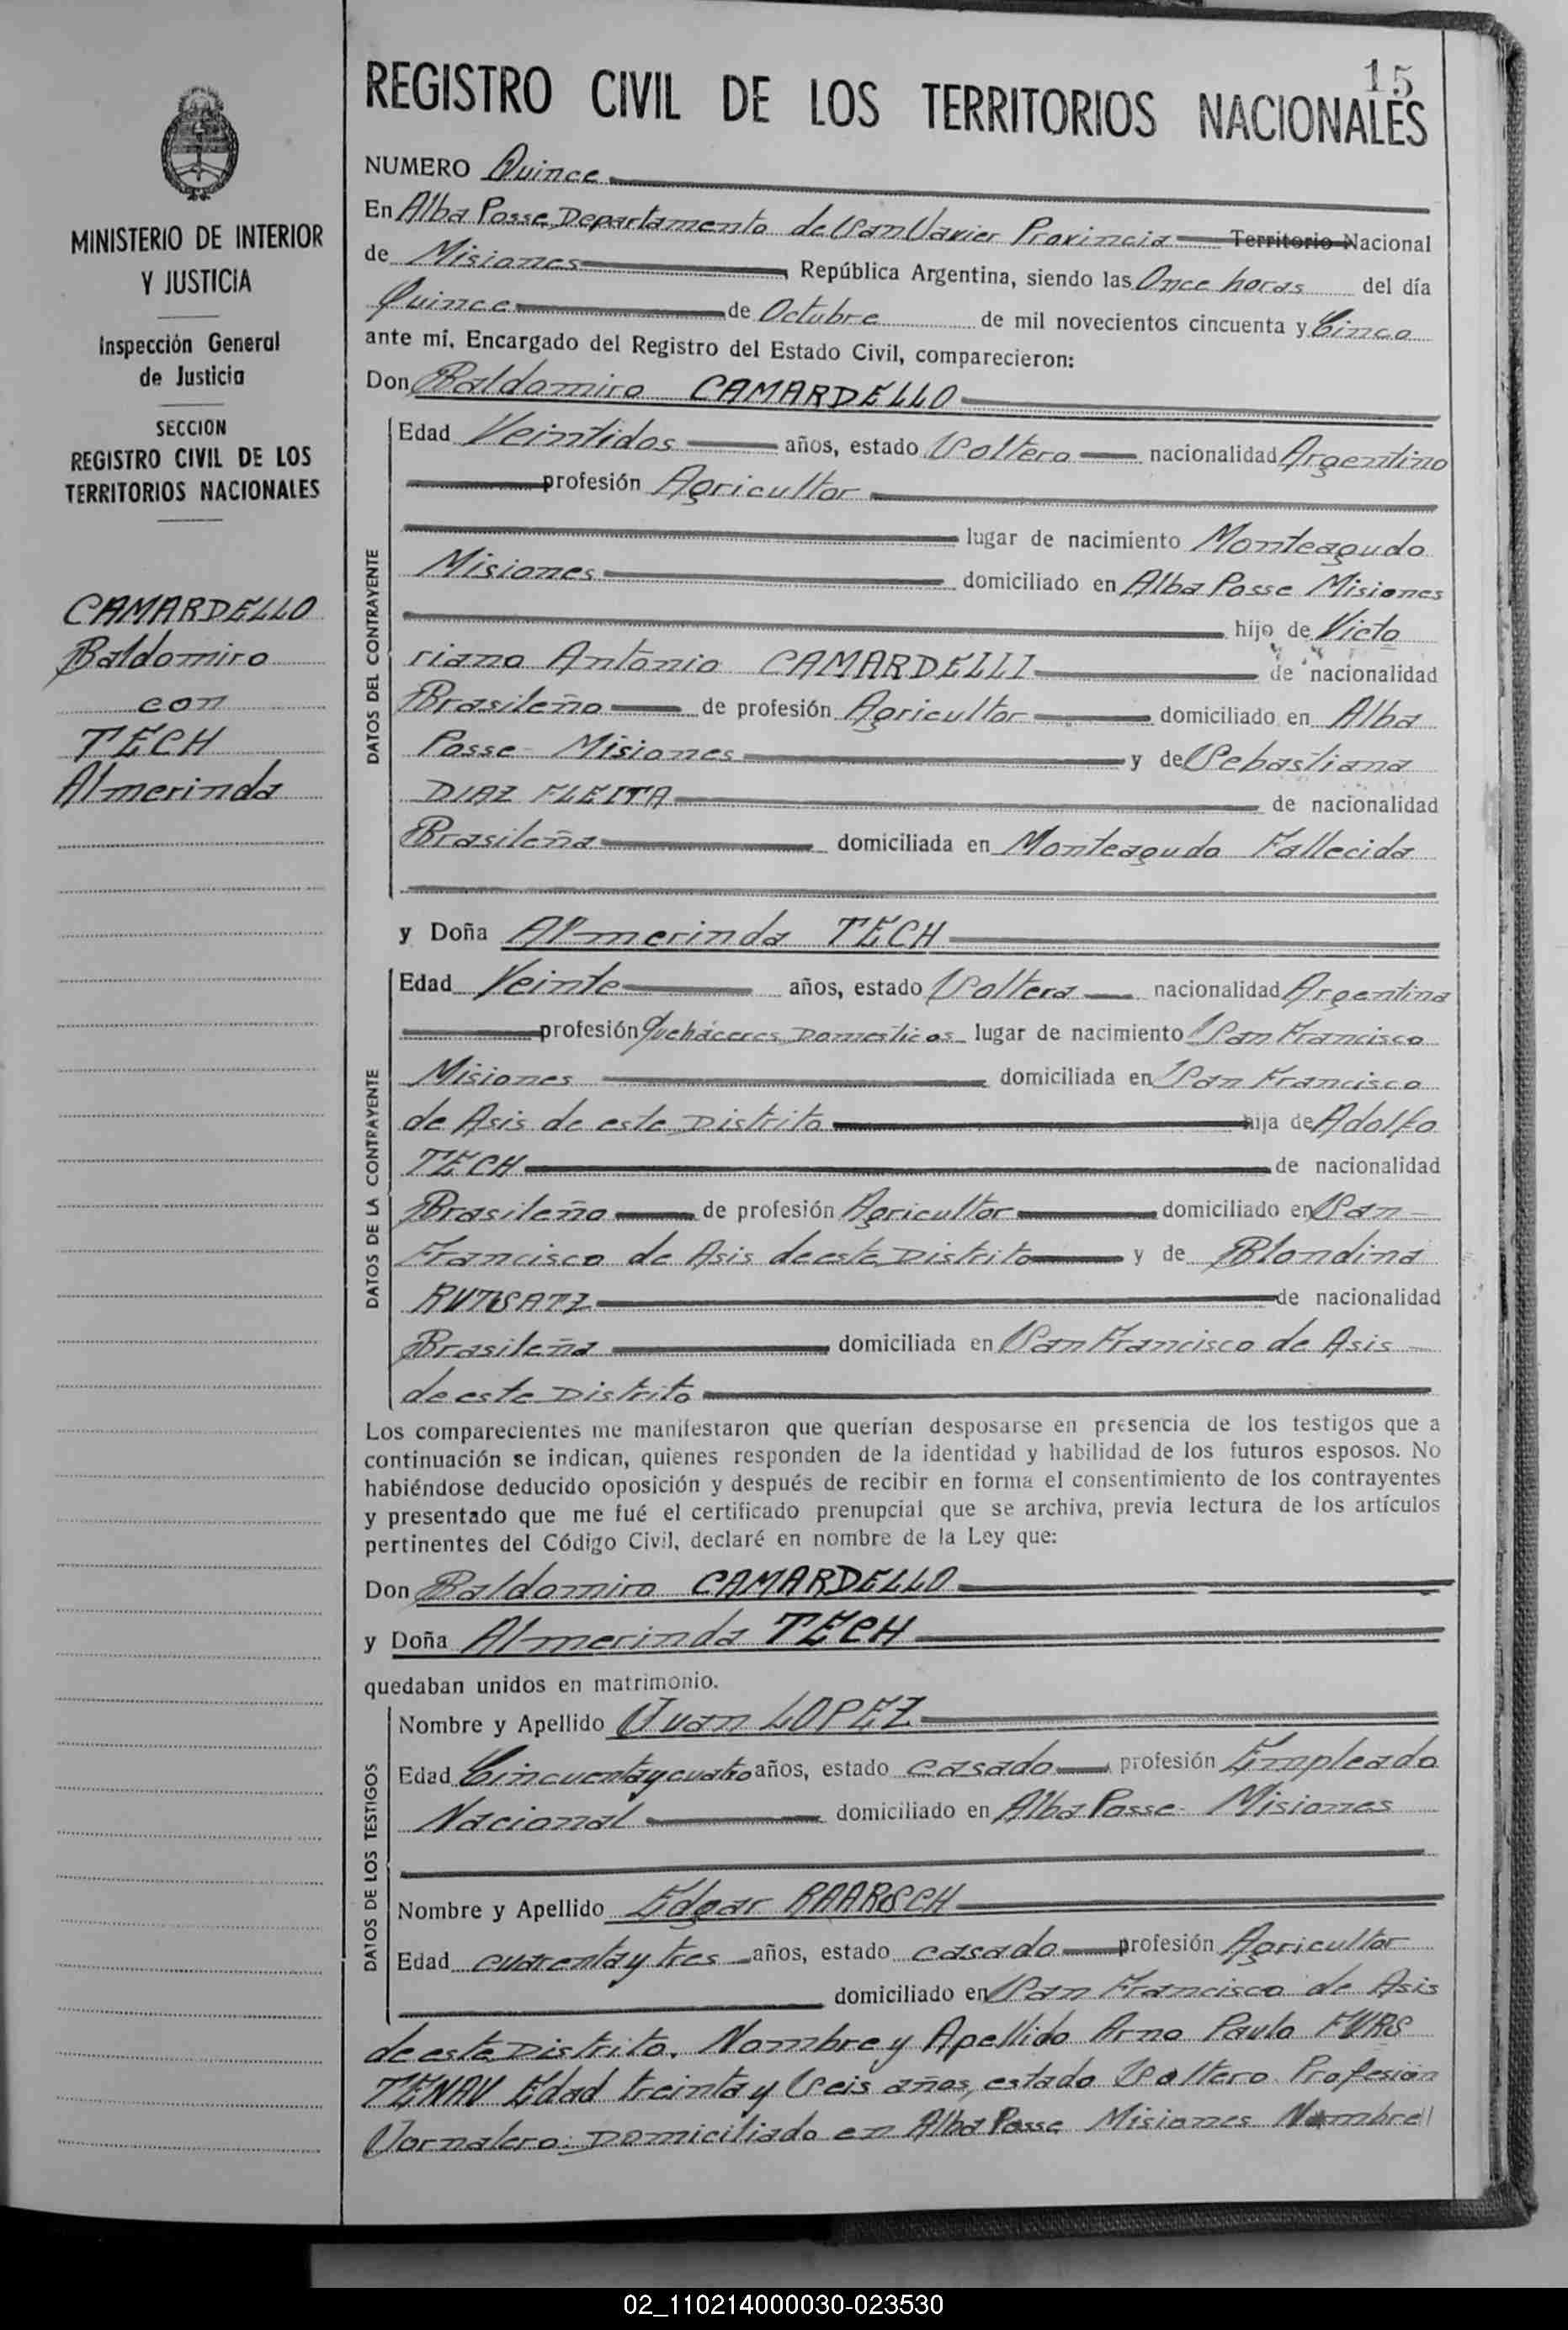 15
REGISTRO CIVIL DE LOS TERRITORIOS NACIONALES
MINISTERIO DE INTERIOR
Y JUSTICIA
Inspección General
de Justicia
SECCION
REGISTRO CIVIL DE LOS
TERRITORIOS NACIONALES
CAMARDELLO
Baldomiro
con
TECH
Almerinda
NUMERO Quince
En Alba Posse Departamento de San Javier Provincia Territorio Nacional
de Misiones, República Argentina, siendo las Once horas del día
Quince de Octubre de mil novecientos cincuenta y Cinco
ante mí, Encargado del Registro del Estado Civil, comparecieron:
Don Baldomiro CAMARDELLO
DATOS DEL CONTRAYENTE
Edad Veintidos años, estado Soltero nacionalidad Argentino
profesión Agricultor
lugar de nacimiento Monteagudo
Misiones domiciliado en Alba Posse Misiones
hijo de Victo
riano Antonio CAMARDELLI de nacionalidad
Brasileño de profesión Agricultor domiciliado en Alba
Posse - Misiones y de Sebastiana
DIAZ FLEITA de nacionalidad
Brasileña domiciliada en Monteagudo Fallecida
y Doña Almerinda TECH
DATOS DE LA CONTRAYENTE
Edad Veinte años, estado Soltera nacionalidad Argentina
profesión Quehaceres Domesticos lugar de nacimiento San Francisco
Misiones domiciliada en San Francisco
de Asis de este Distrito hija de Adolfo
TECH de nacionalidad
Brasileño de profesión Agricultor domiciliado en San
Francisco de Asis de este Distrito y de Blondina
de nacionalidad
Brasileña domiciliada en San Francisco de Asis
de este Distrito
Los comparecientes me manifestaron que querían desposarse en presencia de los testigos que a
continuación se indican, quienes responden de la identidad y habilidad de los futuros esposos. No
habiéndose deducido oposición y después de recibir en forma el consentimiento de los contrayentes
y presentado que me fué el certificado prenupcial que se archiva, previa lectura de los artículos
pertinentes del Código Civil, declaré en nombre de la Ley que:
Don Baldomiro CAMARDELLO
y Doña Almerinda TECH
quedaban unidos en matrimonio.
DATOS DE LOS TESTIGOS
Nombre y Apellido Juan LOPEZ
Edad Cincuenta y cuatro años, estado casado profesión Empleado
Nacional domiciliado en Alba Posse - Misiones
Nombre y Apellido Edgar RAARSCH
Edad cuarenta y tres años, estado casado profesión Agricultor
domiciliado en San Francisco de Asis
de este Distrito. Nombre y Apellido Arno Paulo FURS
TENAU Edad treinta y Seis años, estado Soltero Profesión
Jornalero. Domiciliado en Alba Posse Misiones Nombre
02_110214000030-023530